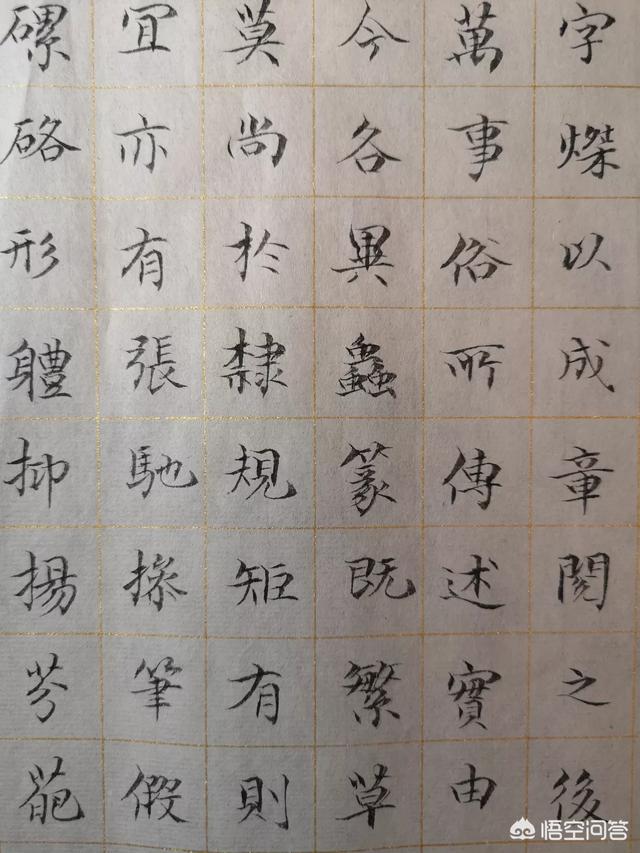 字燦以成章閱之後
萬事俗所傳述實由
今各異蟲篆既繁草
莫尚於隷規矩有則
冝亦有張馳操筆假
磥硌形軆抑揚芬葩
悟空问答